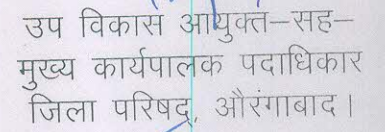 उप विकास आयुक्त–सह–
मुख्य कार्यपालक पदाधिकार
जिला परिषद्, औरंगाबाद।